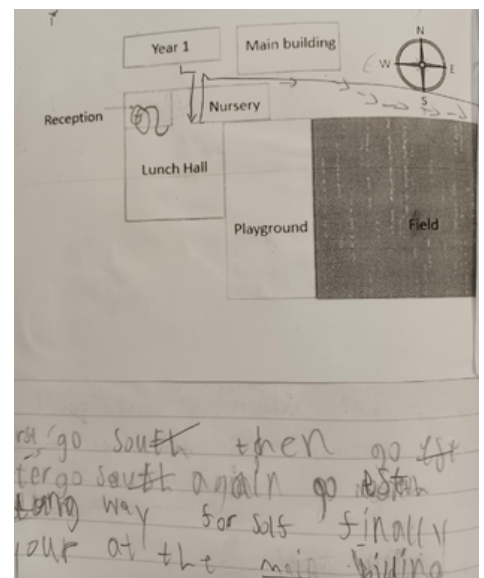 N
Year 1
Main building
W
E
S
Reception
Nursery
Lunch Hall
Playground
Field
rst go south then go
ter go south again go
way for solf finally
your at the main bilding